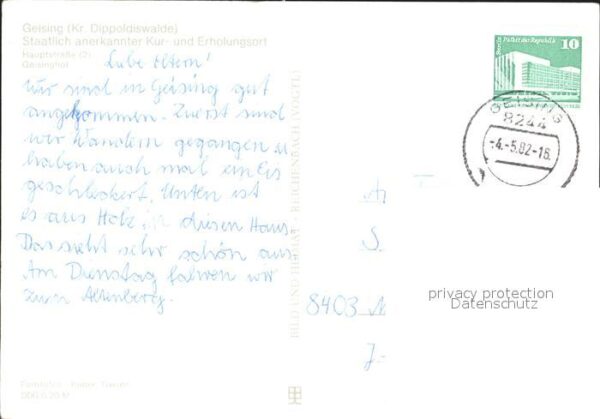 Geising (Kr. Dippoldiswalde)
Staatlich anerkannter Kur- und Erholungsort
Hauptstraße (2)
Geisinghof
Liebe Eltern!
Wir sind in Geising gut
angekommen. Zuerst sind
wir Wandern gegangen u.
haben auch mal ein Eis
geschleckert. Unten ist
es aus Holz in diesen Haus.
Das sieht sehr schön aus.
Am Dienstag fahren wir
zum Altenberg.
BILD UND HEIMAT REICHENBACH (VOGTL)
Berlin Palast der Republik
10
DDR
GEISING
8244
-4.-5.82-16
8403
J.
privacy protection
Datenschutz
DDG 0,20 M